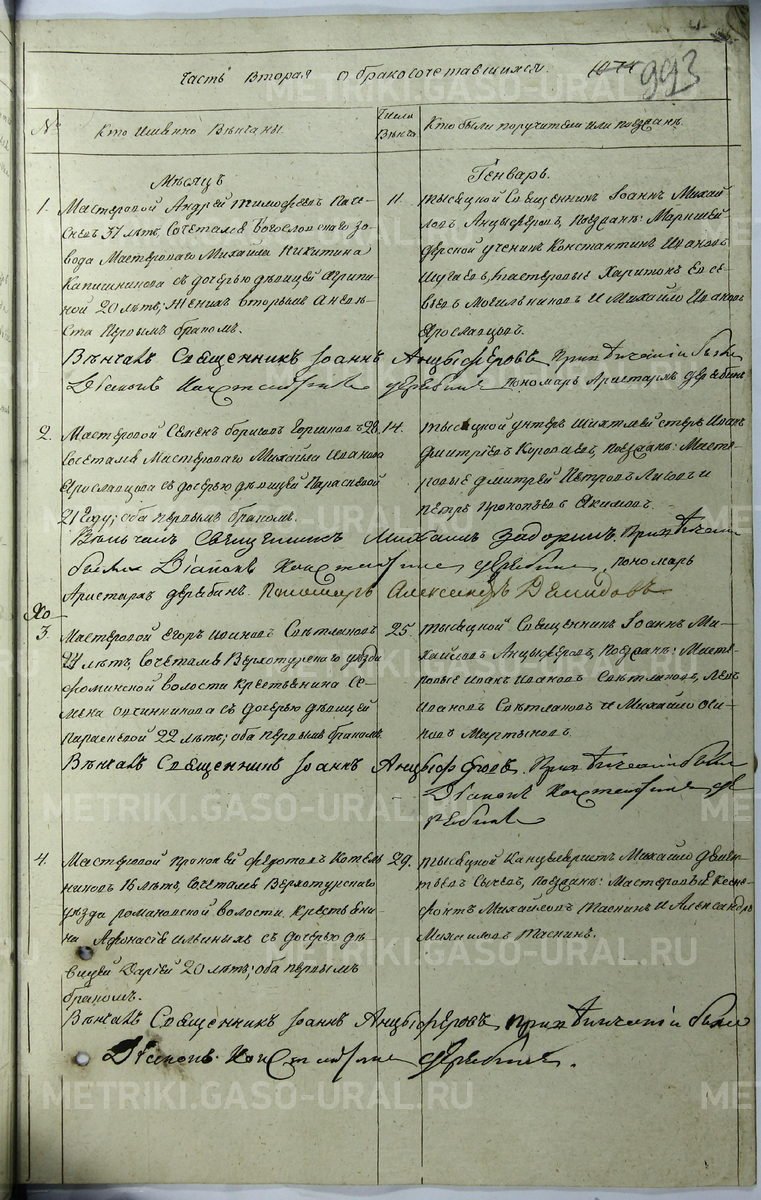 Часть вторая о бракосочетавшихся. 1071 993
№ Кто именно венчаны Число Кто были поручители или поезжанъ
Месяцъ Генварь.
1. Мастеровой Андрей Тимофеевъ
37 летъ, сочетался Богословскаго за-
вода Мастероваго Михаила Никитина
Капишникова съ дочерью девицей Агрипи-
ной 20 летъ; Жених вторымъ а неве-
ста первымъ бракомъ.
11. тысяцкой Священникъ Iоаннъ Михай-
ловъ Анцыферовъ, поезжанъ:
ученикъ Константинъ Ивановъ
Шугаевъ, мастеровые Харитонъ Евсе-
вьевъ Могильниковъ и Михайло Ивановъ
Ярославцовъ.
Венчалъ Священникъ Iоаннъ Анцыферовъ при венчании были
Дiаконъ Константинъ Дерябинъ пономарь Аристархъ Дерябинъ
2. Мастеровой Семенъ Борисовъ 28.
сочетался Мастероваго Михаила Иванова
Ярославцова съ дочерью девицей Парасковой
21 году; оба первымъ бракомъ.
14. тысяцкой унтеръ шихтмейстеръ Иванъ
Дмитриевъ поезжанъ: Масте-
ровые Дмитрей Петровъ и
Петръ Прокопьевъ Якимовъ.
Венчалъ Священникъ Михаилъ Задоринъ. При венчании
были Дiаконъ Константинъ Дерябинъ, пономарь
Аристархъ Дерябинъ. Пономарь Александръ Демидовъ
Хо
3. Мастеровой Егоръ Ивановъ Светлаковъ
летъ, сочетался Верхотурскаго уезда
Фоминской волости крестьянина Се-
мена Овчинникова съ дочерью девицей
Парасковой 22 летъ; оба первымъ бракомъ.
25. тысяцкой Священникъ Iоаннъ Ми-
хайловъ Анцыферовъ, поезжанъ: Масте-
ровые Иванъ Ивановъ Светлаковъ, Левъ
Ивановъ Светлаковъ и Михайло Оси-
повъ Мартыновъ.
Венчалъ Священникъ Iоаннъ Анцыферовъ. При венчании были
Дiаконъ Константинъ Де-
рябинъ
4. Мастеровой Прокопей Федотовъ Котель-
никовъ 16 летъ, сочетался Верхотурскаго
уезда Романовской волости крестьяни-
на Афонасiя Ильиныхъ съ дочерью де-
вицей Дарьей 20 летъ; оба первымъ
бракомъ.
29. тысяцкой Канцеляристъ Михайло Демен-
тьевъ Сычевъ, поезжанъ: Мастеровые Ксено-
фонтъ Михайловъ и Александръ
Михайловъ
Венчалъ Священникъ Iоаннъ Анцыферовъ при венчании были
Дiаконъ Константинъ Дерябинъ.
METRIKI.GASO-URAL.RU